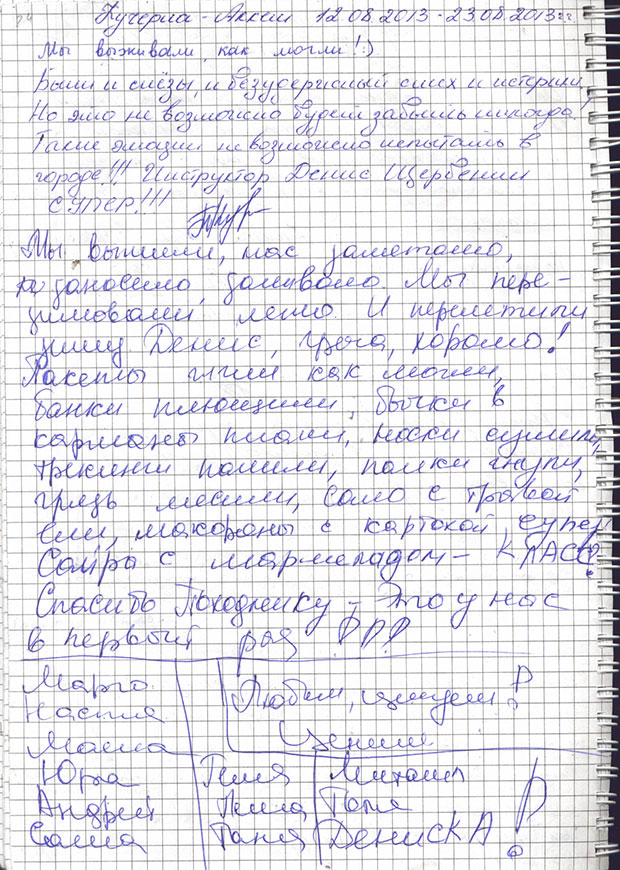 Кучерла - Аккем 12.08.2013 - 23.08.2013 г.
Мы выживали, как могли! :)
Были и слёзы, и безудержный смех и истерики
Но это не возможно будет забыть никогда!
Такие эмоции не возможно испытать в
городе!!! Инструктор Денис Щербинин
супер!!!
Мы вышли, нас заметало,
заносило, заливало. Мы пере-
зимовали лето. И переметный
Денис, греча, хорошо!
Пакеты жгли как могли,
банки плющили, бычки в
карманы пихали, носки сушили,
треккинги палили, палки гнули,
грязь месили, сало с травой
ели, макароны с картохой супер
Сайра с мармеладом - КЛАСС!
Спасибо Походнику - Это у нас
в первый раз !!!
Марго
Настя
Маша
Любим, целуем!
Ценим
Юра Гиля Михаил
Андрей Лена Толя
Саша Таня ДенискА!